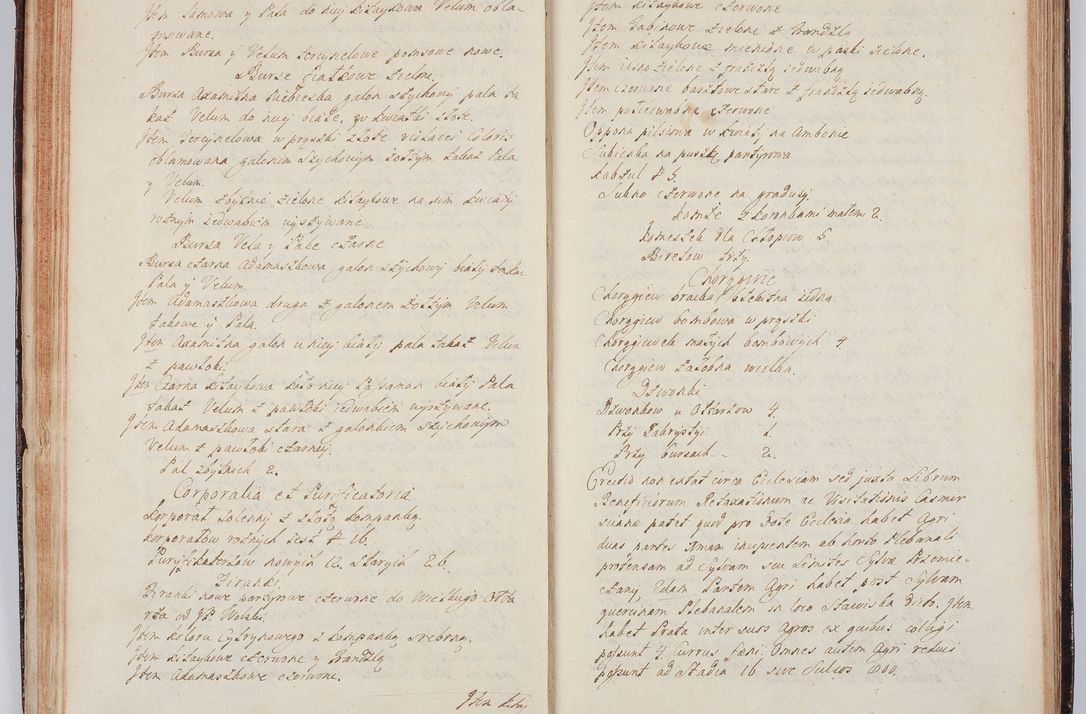 Item Lamowa y Pala do niej kitaykowa Velum obla-
mowane.
Item Bursa y Velum tercynelowe ponsowe nowe.
Burse fiałkowe zielone
Bursa Adamszka niebieska galon szychowy pala ta
każ Velum do niey białe, w kwiatki złote.
Item tercynelowa w prążki złote coloris
oblamowana galonem szychowym żołtym takaż Pala
y Velum.
Velum zbytnie zielone kitaykowe na nim kwiaty
rożnym jedwabiem wyszywane
Bursa Vela y Pale czarne
Bursa czarna Adamaszkowa galon szychowy biały taka
Pala y Velum.
Item Adamaszkowa druga z galonem żołtym Velum
takowe y Pala.
Item Adamszka galon u niey biały pala takaż Velum
z pawłoki.
Item Czarna kitaykowa koło niey Passamon biały Pala
takaż Velum z pawłoki jedwabiem wyszywane.
Item Adamaszkowa stara z galonkiem szychowym
Velum z pawłoki czarney.
Pal zbytnich 2.
Corporalia et Purificatoria
Korporał solenny z złotą kompanką.
Korporałow rożnych jest # 16.
Purifikaterzow nowych 12. starych 26.
Firanki
Firanki nowe partyrowe czerwone do Wielkiego Ołta
rza od JP. Wolski.
Item koloru Cytrynowego z kompanką srebrną.
Item kitaykowe czerwone y frandzlą
Item Adamaszkowe czerwone.
Item kitay
Item kitaykowe czerwone
Item Gabinowe zielone z frandzlą
Item kitaykowe mienione w paski zielone.
Item iasno zielone z frandzlą jedwabną
Item czerwone bagazyowe stare z frandzlą jedwabną.
Item czerwone
Oppona pilsiowa w kwiaty na Ambonie
Sukienka na puszkę partyrowa
# 5.
Sukno czerwone na gradusy
Komże z koronkami małemi 2.
Komeszek dla Chłopcow 6
Biretow trzy.
Chorągwie
Chorągiew bracka błękitna jedna.
Chorągiew kembowa w prążki
Chorągiewek małych kembowych 4
Chorągiew żałobna wielka.
Dzwonki
Dzwonkow u Ołtarzow 4.
Przy Zakrystyi 1.
Przy bursach - 2.
Erectio non extat circa Ecclesiam sed juxta Librum
Beneficiorum Retaxationum ac Visitationis Casimir
sciana patet quod pro Dote Ecclesia habet Agri
duas partes Unam incipientem ab horto Plebanali
protensam ad Sylvam seu Limites Sylva Przemie-
czany, 2dam Partem Agri habet post Sylvam
quercinam Plebanalem in loco Stawiska dicto. Item
habet Prata inter suos Agros ex quibus colligi
possunt 4 Currus faeni. Omnes autem Agri reduci
possunt ad Stadia 16 sive Sulcos 1000.